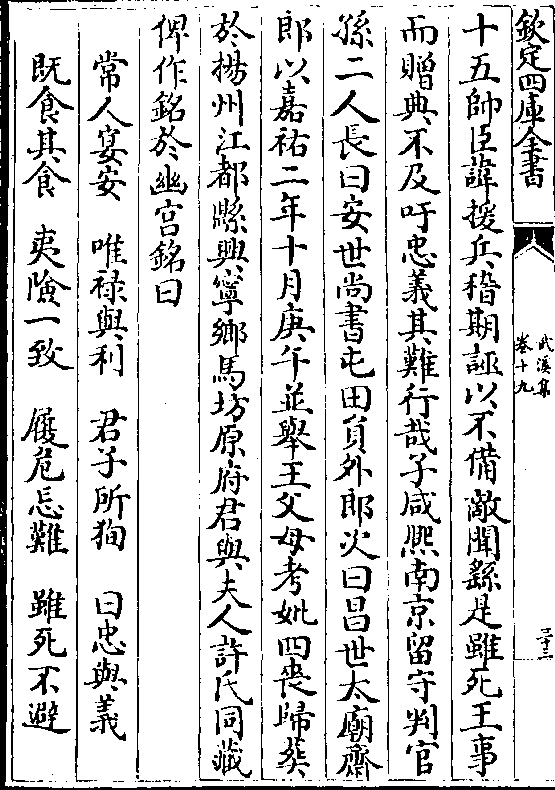 欽定四庫全書
武溪集
卷十九
二十三
十五帥臣諱援兵稽期誣以不備敵聞繇是雖死王事
而贈典不及吁忠義其難行哉子咸熙南京留守判官
孫二人長曰安世尚書屯田員外郎次曰昌世太廟齋
郎以嘉祐二年十月庚午並舉王父母考妣四喪歸葬
於揚州江都縣興寧鄉馬坊原府君與夫人許氏同藏
俾作銘於幽宮銘曰
常人宴安　唯祿與利　君子所徇　曰忠與義
既食其食　夷險一致　履危忘難　雖死不避